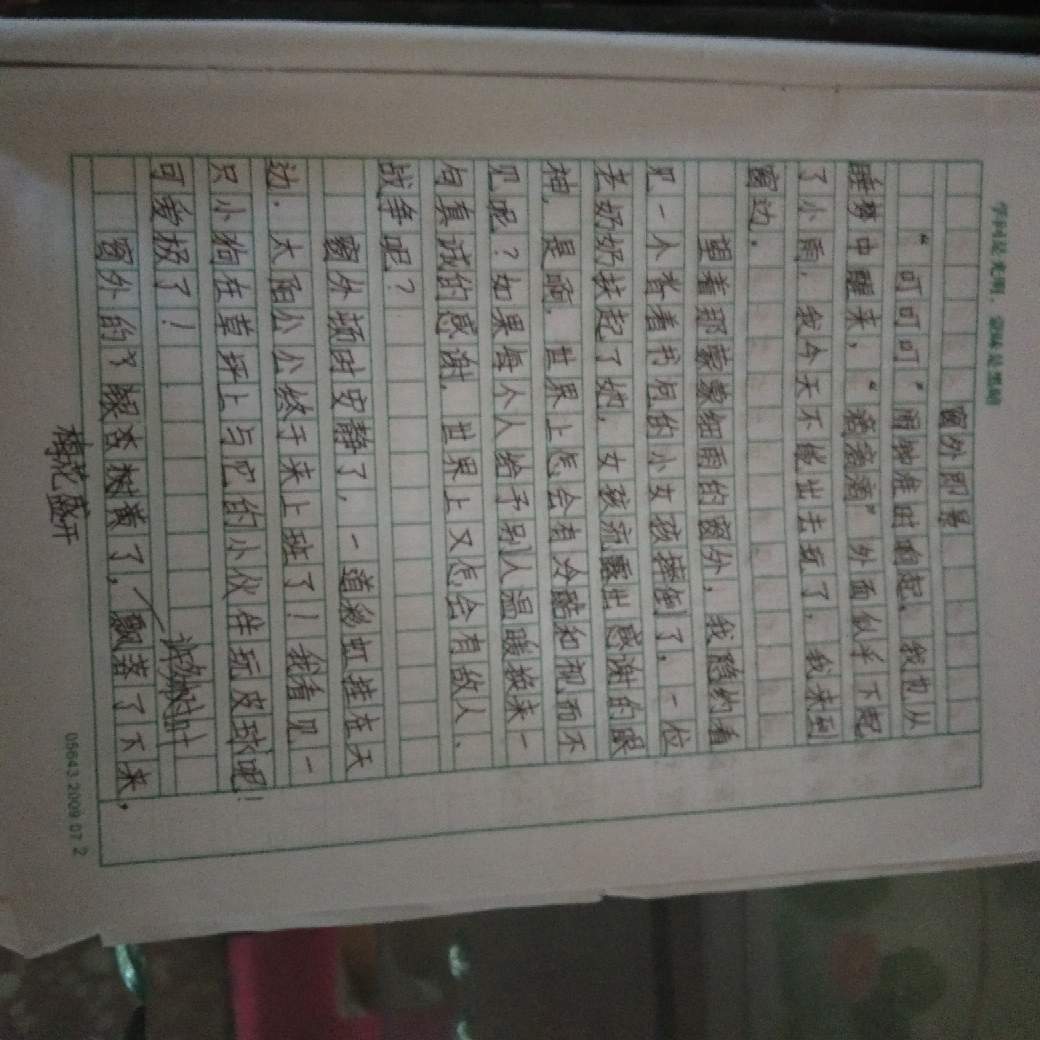 窗外即景
“叮叮叮”闹钟准时响起，我也从
睡梦中醒来，“滴滴滴”外面似乎下起
了小雨，我今天不能出去玩了，我来到
窗边。
望着那蒙蒙细雨的窗外，我隐约看
见一个背着书包的小女孩摔倒了，一位
老奶奶扶起了她，女孩流露出感谢的眼
神，是啊，世界上怎会有冷酷和视而不
见呢？如果每个人给予别人温暖换来一
句真诚的感谢，世界上又怎会有敌人、
战争呢？
窗外顿时安静了，一道彩虹挂在天
边．太阳公公终于来上班了！我看见一
只小狗在草坪上与它的小伙伴玩皮球呢！
可爱极了！
窗外的银杏树黄了，飘落了下来，
梅花盛开
05643.2009.07.2